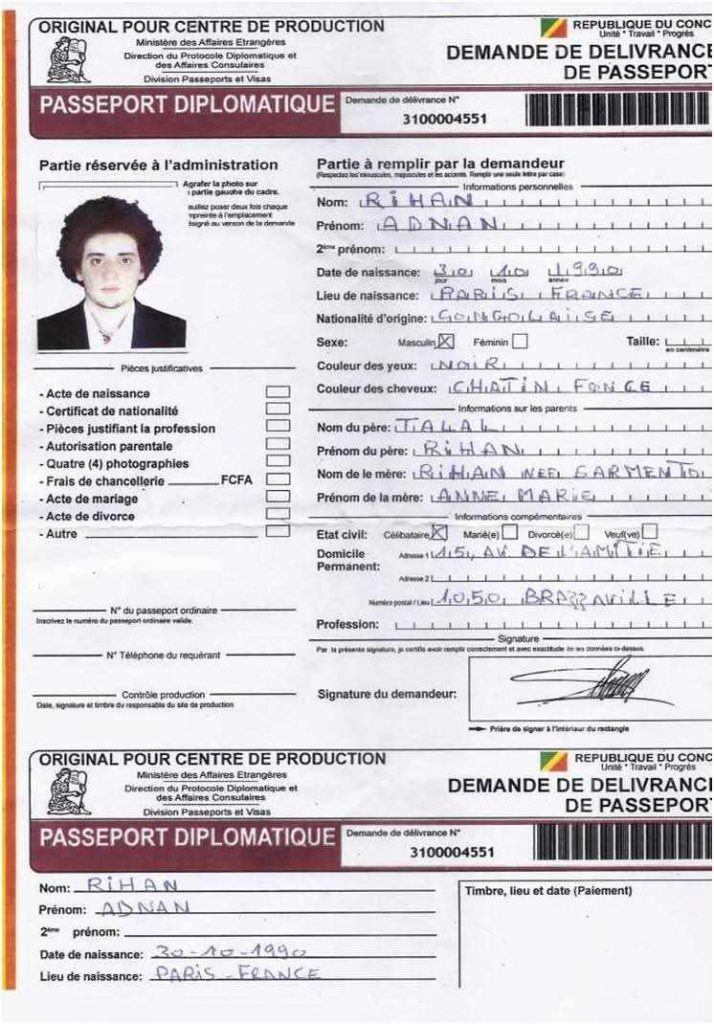 ORIGINAL POUR CENTRE DE PRODUCTION
Ministère des Affaires Etrangères
Direction du Protocole Diplomatique et
des Affaires Consulaires
Division Passeports et Visas
REPUBLIQUE DU CONC
Unité * Travail * Progrès
DEMANDE DE DELIVRANCE
DE PASSEPORT
PASSEPORT DIPLOMATIQUE
Demande de délivrance N°
3100004551
Partie réservée à l'administration
Agrafer la photo sur
partie gauche du cadre.
euillez poser deux fois chaque
mpreinte à l'emplacement
ésigné au verson de la demande
Pièces justificatives
- Acte de naissance
- Certificat de nationalité
- Pièces justifiant la profession
- Autorisation parentale
- Quatre (4) photographies
- Frais de chancellerie FCFA
- Acte de mariage
- Acte de divorce
- Autre
N° du passeport ordinaire
Inscrivez le numéro du passeport ordinaire valide.
N° Téléphone du requérant
Contrôle production
Date, signature et timbre du responsable du site de production
Partie à remplir par la demandeur
(Respectez les minuscules, majuscules et en accents. Remplir une seule lettre par case)
Informations personnelles
Nom: RIHAN
Prénom: ADNAN
2ème prénom:
Date de naissance: 30 10 1990
jour mois année
Lieu de naissance: PARIS FRANCE
Nationalité d'origine: CONGOLAISE
Sexe: Masculin X Féminin Taille:
en centimètre
Couleur des yeux: NOIR
Couleur des cheveux: CHATIN FONCE
Informations sur les parents
Nom du père: TALAL
Prénom du père: RIHAN
Nom de le mère: RIHAN NEE SARMENTO
Prénom de la mère: ANNE MARIE
Informations complémentaires
Etat civil: Célibataire X Marié(e) Divorcé(e) Veuf(ve)
Domicile
Permanent:
Adresse 1 15, AV DE L'AMITIE
Adresse 2
Numéro postal / Lieu 1050 BRAZZAVILLE
Profession:
Signature
Par la présente signature, je certifie avoir rempli correctement et avec exactitude de les données ci-dessus.
Signature du demandeur:
Prière de signer à l'intérieur du rectangle
ORIGINAL POUR CENTRE DE PRODUCTION
Ministère des Affaires Etrangères
Direction du Protocole Diplomatique et
des Affaires Consulaires
Division Passeports et Visas
REPUBLIQUE DU CONC
Unité * Travail * Progrès
DEMANDE DE DELIVRANCE
DE PASSEPORT
PASSEPORT DIPLOMATIQUE
Demande de délivrance N°
3100004551
Nom: RIHAN
Prénom: ADNAN
2ème prénom:
Date de naissance: 30-10-1990
Lieu de naissance: PARIS-FRANCE
Timbre, lieu et date (Paiement)